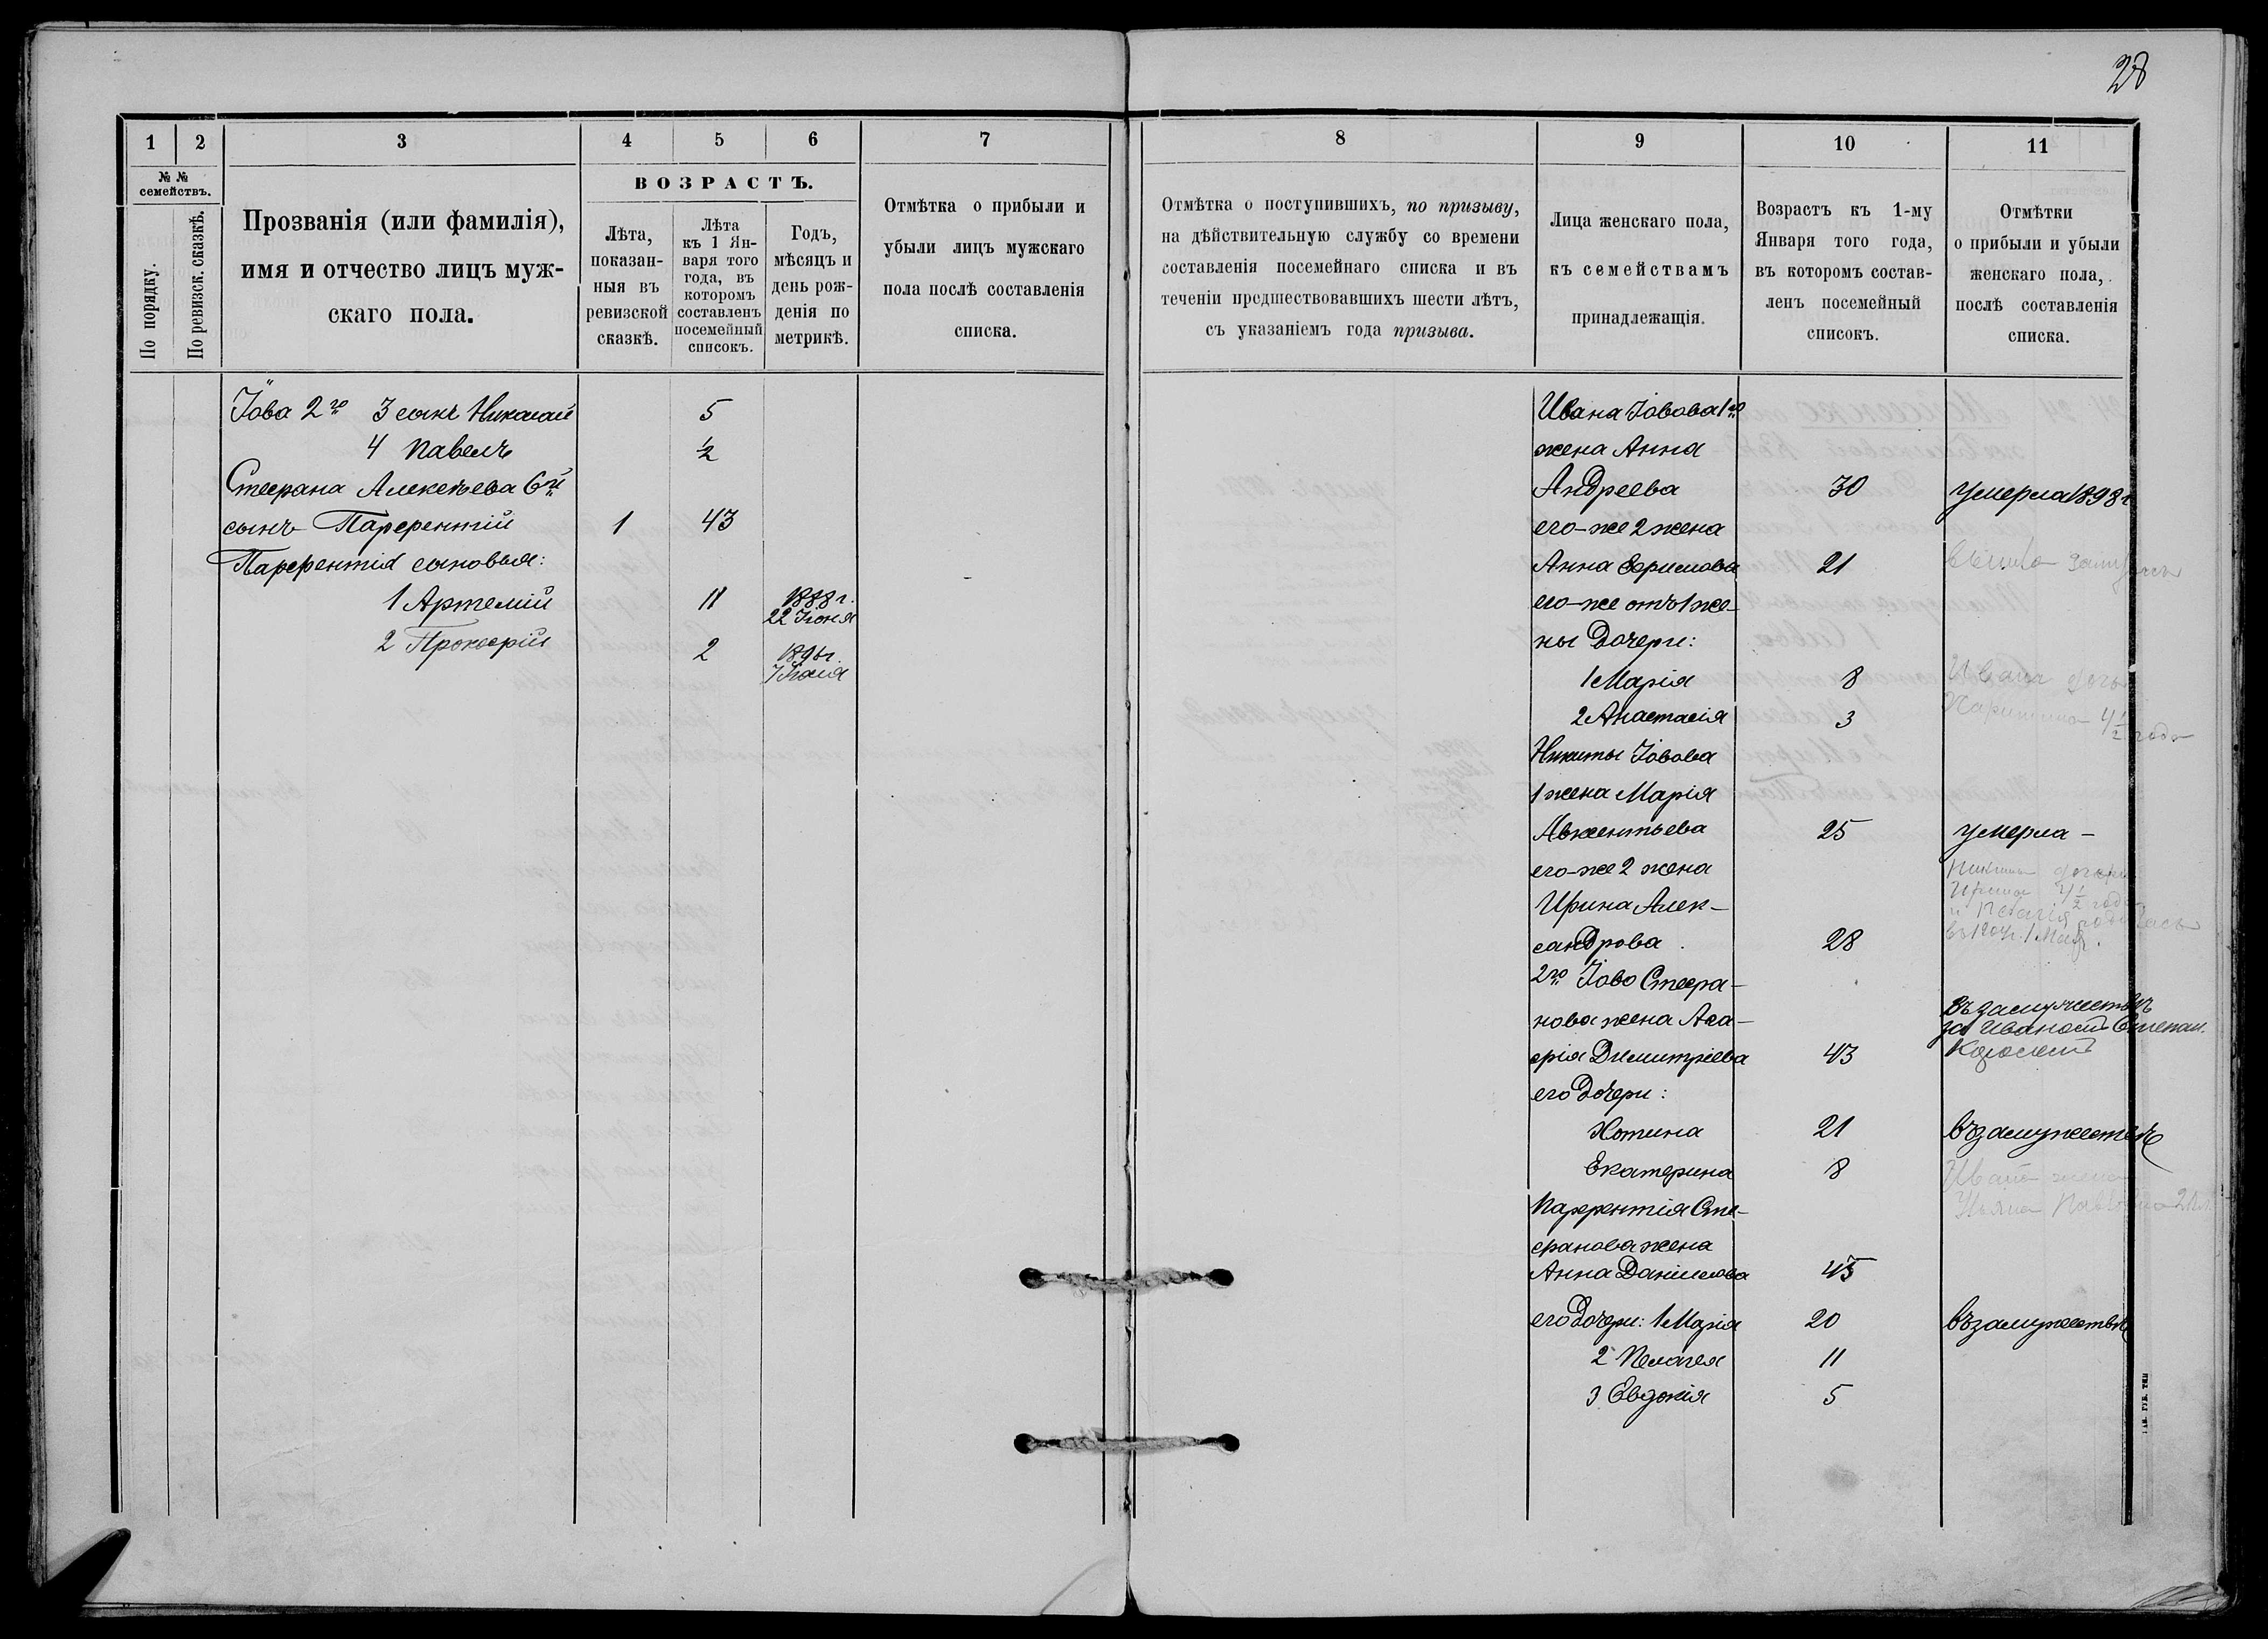 28
1 2 3 4 5 6 7
№ №
семействъ.
По порядку.
По ревизск. сказкѣ.
Прозванія (или фамилія),
имя и отчество лицъ муж-
скаго пола.
ВОЗРАСТЪ.
Лѣта,
показан-
ныя въ
ревизской
сказкѣ.
Лѣта
къ 1 Ян-
варя того
года, въ
которомъ
составленъ
посемейный
списокъ.
Годъ,
мѣсяцъ и
день рож-
денія по
метрикѣ.
Отмѣтка о прибыли и
убыли лицъ мужскаго
пола послѣ составленія
списка.
Іова 2го 3 сынъ Николай 5
4 Павелъ ½
Стефана Алексѣева 6й
сынъ Парфентій 1 43
Парфентія сыновья:
1 Артемій 11 1888 г.
22 Іюня
2 Прокофій 2 1896 г.
7 Іюля
8 9 10 11
Отмѣтка о поступившихъ, по призыву,
на дѣйствительную службу со времени
составленія посемейнаго списка и въ
теченіи предшествовавшихъ шести лѣтъ,
съ указаніемъ года призыва.
Лица женскаго пола,
къ семействамъ
принадлежащія.
Возрастъ къ 1-му
Января того года,
въ которомъ состав-
ленъ посемейный
списокъ.
Отмѣтки
о прибыли и убыли
женскаго пола,
послѣ составленія
списка.
Ивана Іовова 1го
жена Анна
Андреева 30 умерла 1898 г
его-же 2 жена
Анна Ефимова 21 вышла замужъ
его-же отъ 1 же-
ны дочери:
1 Марія 8 Ивана дочь
2 Анастасія 3 4½ года
Никиты Іовова
1 жена Марія
Авксентьева 25 умерла -
его-же 2 жена
Ирина Алек-
сандрова 28
Никиты дочери
Ирина 4½ года
и Пелагія родилась
2го Іово Стефа-
нова жена Ага-
фія Димитріева 43
въ замужествѣ
за Иваномъ Степан.
его дочери:
Хотина 21 въ замужествѣ
Екатерина 8 Ивана жена
Ульяна Павловна
Парфентія Сте-
фанова жена
Анна Данилова 45
его дочери: 1 Марія 20 въ замужествѣ
2 Пелагея 11
3 Евдокія 5